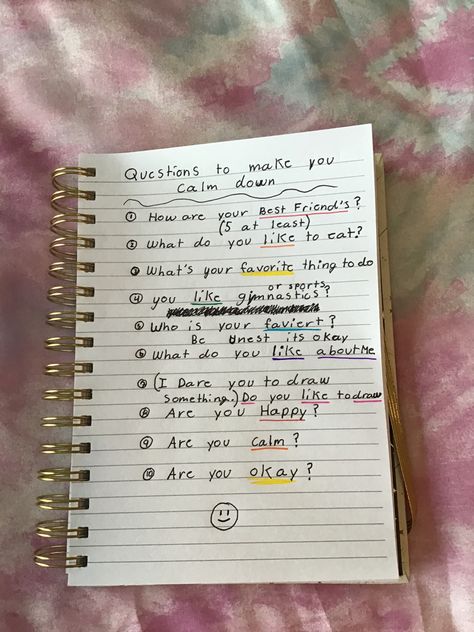 Questions to make you
calm down
① How are your Best Friend's?
(5 at least)
② What do you like to eat?
③ What's your favorite thing to do
or sports
④ you like gimnastics?
⑤ Who is your faviert?
Be Onest its okay
⑥ What do you like about Me
⑦ (I Dare you to draw
something..) Do you like to draw
⑧ Are you Happy?
⑨ Are you calm?
⑩ Are you okay?